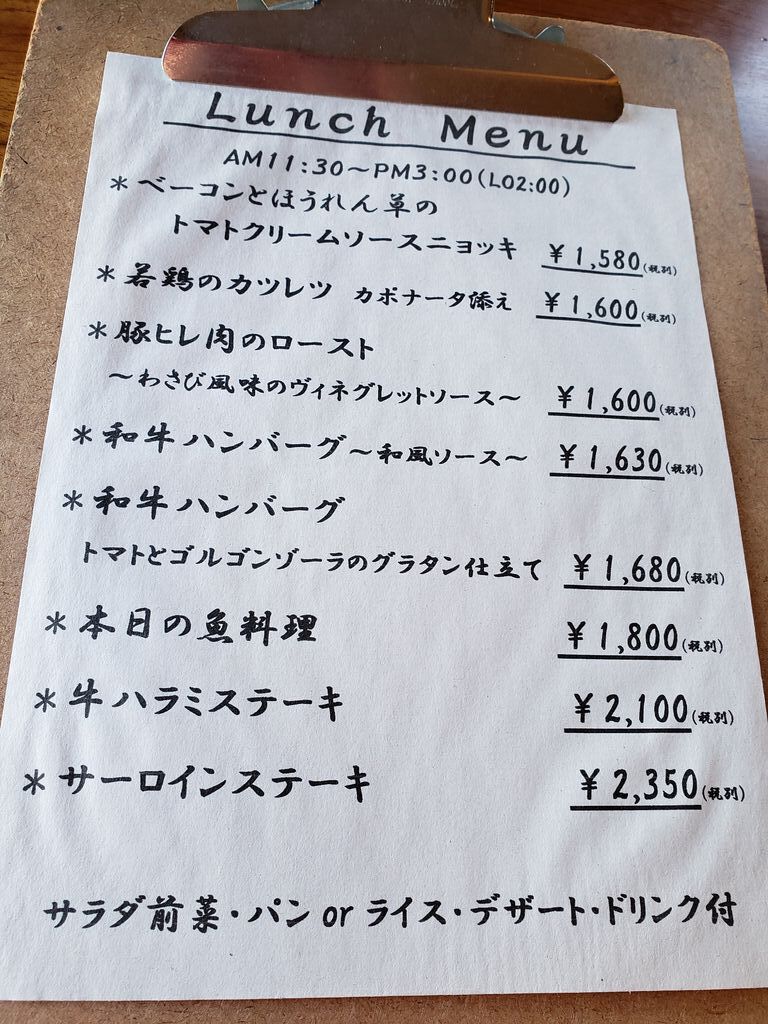 Lunch Menu
AM11:30～PM3:00(LO2:00)
＊ベーコンとほうれん草の
トマトクリームソースニョッキ ￥1,580(税別)
＊若鶏のカツレツ カポナータ添え ￥1,600(税別)
＊豚ヒレ肉のロースト
～わさび風味のヴィネグレットソース～ ￥1,600(税別)
＊和牛ハンバーグ～和風ソース～ ￥1,630(税別)
＊和牛ハンバーグ
トマトとゴルゴンゾーラのグラタン仕立て ￥1,680(税別)
＊本日の魚料理 ￥1,800(税別)
＊牛ハラミステーキ ￥2,100(税別)
＊サーロインステーキ ￥2,350(税別)
サラダ前菜・パン or ライス・デザート・ドリンク付